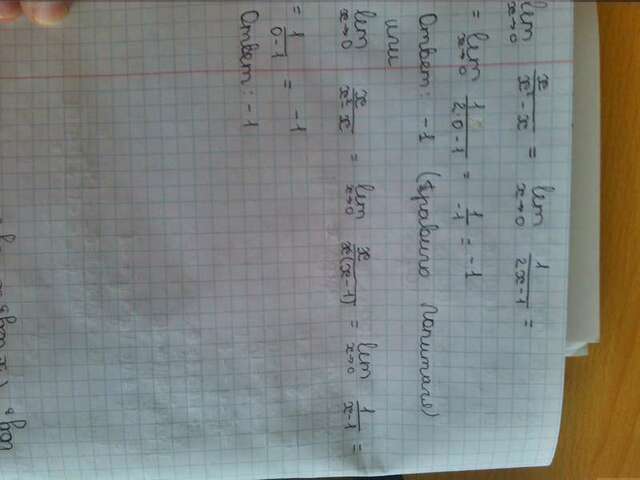 lim x→0 x/(x² - x) = lim x→0 1/(2x-1) =
= lim x→0 1/(2·0-1) = 1/-1 = -1
Ответ: -1 (Правило Лопиталя)
или
lim x→0 x/(x²-x) = lim x→0 x/(x(x-1)) = lim x→0 1/(x-1) =
= 1/(0-1) = -1
Ответ: -1